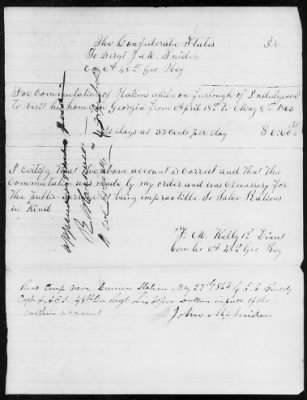 The Confederate States Dr
To Sergt J. M. Snider
Co A 48th Geo Reg
For Commutation of Rations while on furlough of Indulgence
to visit his home in Georgia from April 18th to May 8th 1863
20 days at 33 Cents per day $6.60
I certify that the above account is correct and that this
Commutation was made by my order and was necessary for
the public service it being impractible to Take Rations
in Kind
Kelly 1st Lieut
Com Co A 48th Geo Reg
Recd Camp near Station May 27th 1863 of
Capt & A.C.S. 48th Ga Regt Six Dollars in full of the
within account
John M Snider